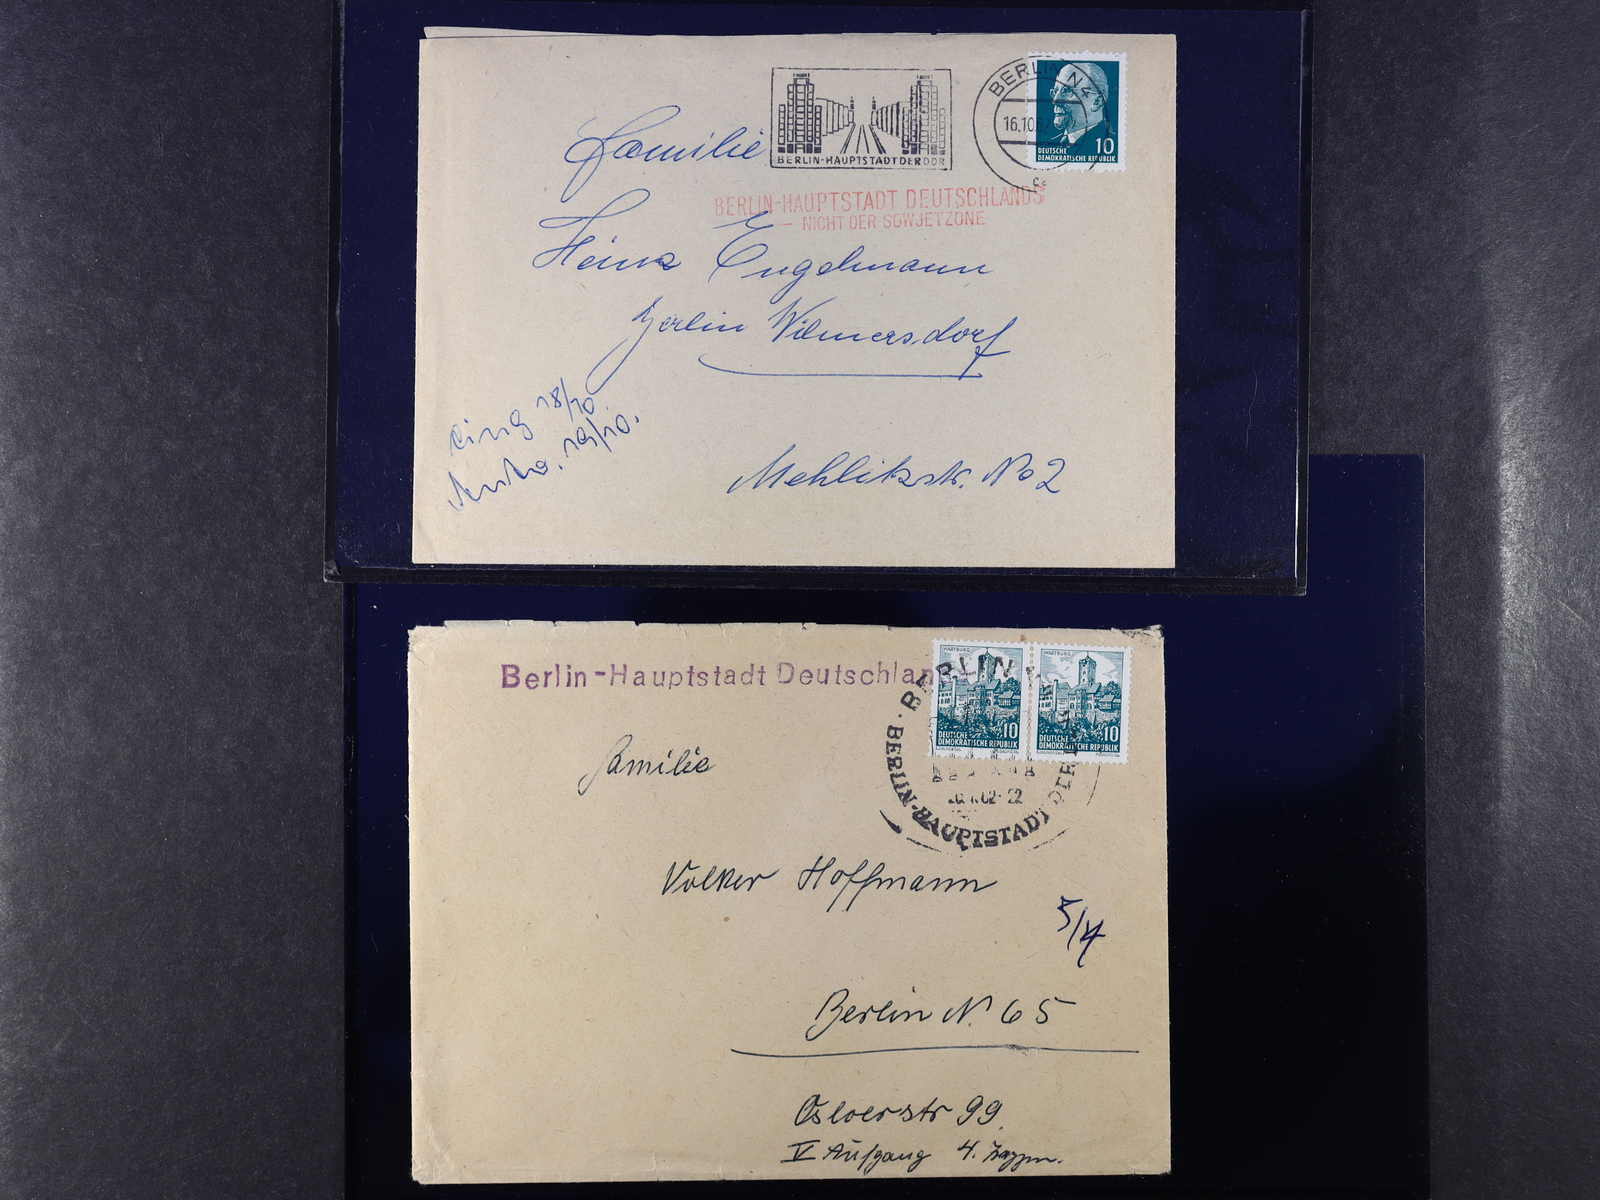 BERLIN N4
16.10.6
BERLIN-HAUPTSTADT DER DDR
10
DEUTSCHE
DEMOKRATISCHE REPUBLIK
BERLIN-HAUPTSTADT DEUTSCHLANDS
— NICHT DER SOWJETZONE
Familie
Heinz Engelmann
Berlin Wilmersdorf
eing 18/10
19/10.
Mehlitzstr. No 2
Berlin-Hauptstadt Deutschlands
WARTBURG
10
DEUTSCHE
DEMOKRATISCHE REPUBLIK
WARTBURG
10
DEUTSCHE
DEMOKRATISCHE REPUBLIK
BERLIN
BERLIN-HAUPTSTADT DER
62-22
Familie
Volker Hoffmann
5/4
Berlin N. 65
Osloerstr 99
V Aufgang 4.